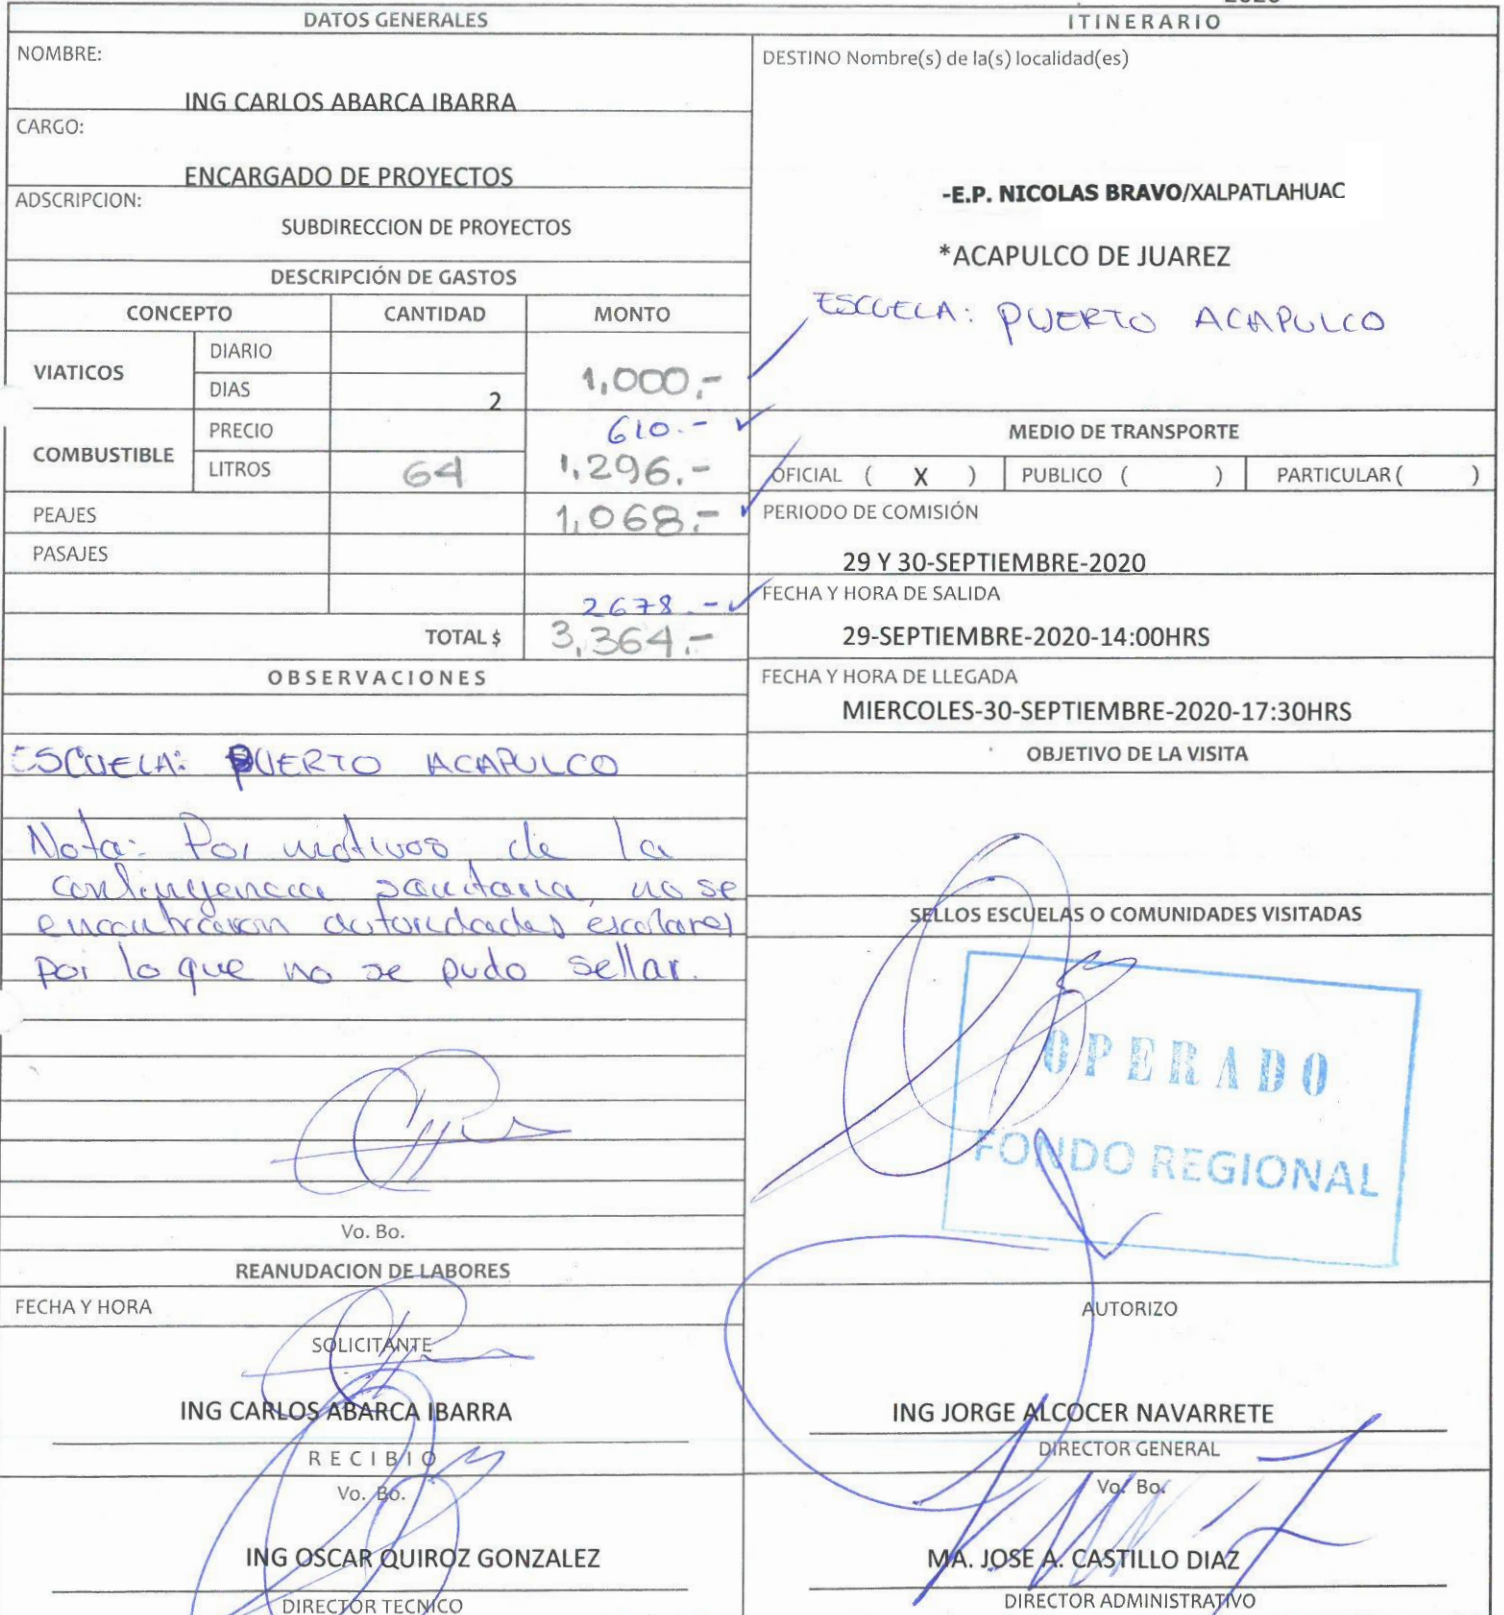 DATOS GENERALES
NOMBRE:
ING CARLOS ABARCA IBARRA
CARGO:
ENCARGADO DE PROYECTOS
ADSCRIPCION:
SUBDIRECCION DE PROYECTOS
DESCRIPCIÓN DE GASTOS
CONCEPTO CANTIDAD MONTO
VIATICOS DIARIO
DIAS 2 1,000.-
COMBUSTIBLE PRECIO 610.-
LITROS 64 1,296.-
PEAJES 1,068.-
PASAJES
2678.-
TOTAL $ 3,364.-
OBSERVACIONES
ESCUELA: PUERTO ACAPULCO
Nota: Por motivos de la
contingencia sanitaria, no se
encontraron autoridades escolares
por lo que no se pudo sellar.
Vo. Bo.
REANUDACION DE LABORES
FECHA Y HORA
SOLICITANTE
ING CARLOS ABARCA IBARRA
RECIBIO
Vo. Bo.
ING OSCAR QUIROZ GONZALEZ
DIRECTOR TECNICO
ITINERARIO
DESTINO Nombre(s) de la(s) localidad(es)
-E.P. NICOLAS BRAVO/XALPATLAHUAC
*ACAPULCO DE JUAREZ
ESCUELA: PUERTO ACAPULCO
MEDIO DE TRANSPORTE
OFICIAL ( X ) PUBLICO ( ) PARTICULAR ( )
PERIODO DE COMISIÓN
29 Y 30-SEPTIEMBRE-2020
FECHA Y HORA DE SALIDA
29-SEPTIEMBRE-2020-14:00HRS
FECHA Y HORA DE LLEGADA
MIERCOLES-30-SEPTIEMBRE-2020-17:30HRS
OBJETIVO DE LA VISITA
SELLOS ESCUELAS O COMUNIDADES VISITADAS
OPERADO
FONDO REGIONAL
AUTORIZO
ING JORGE ALCOCER NAVARRETE
DIRECTOR GENERAL
Vo. Bo.
MA. JOSE A. CASTILLO DIAZ
DIRECTOR ADMINISTRATIVO